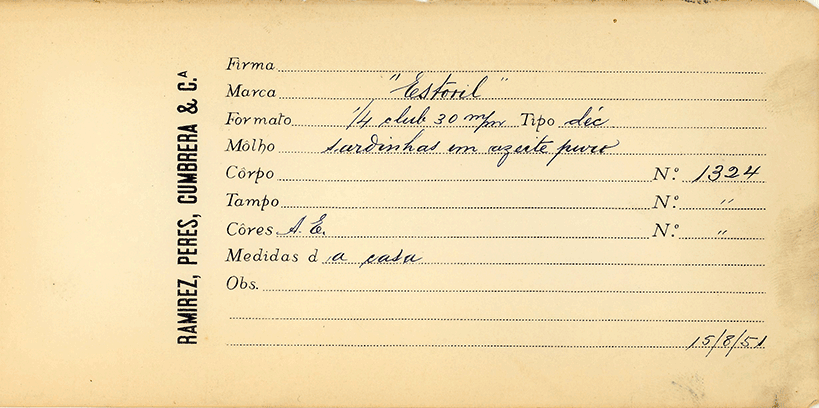 RAMIREZ, PERES, CUMBRERA & C.ᴬ
Firma
Marca "Estoril"
Formato 1/4 club 30 m/m Tipo déc
Môlho sardinhas em azeite puro
Côrpo N.º 1324
Tampo N.º "
Côres A. E. N.º "
Medidas d a casa
Obs.
15/8/51